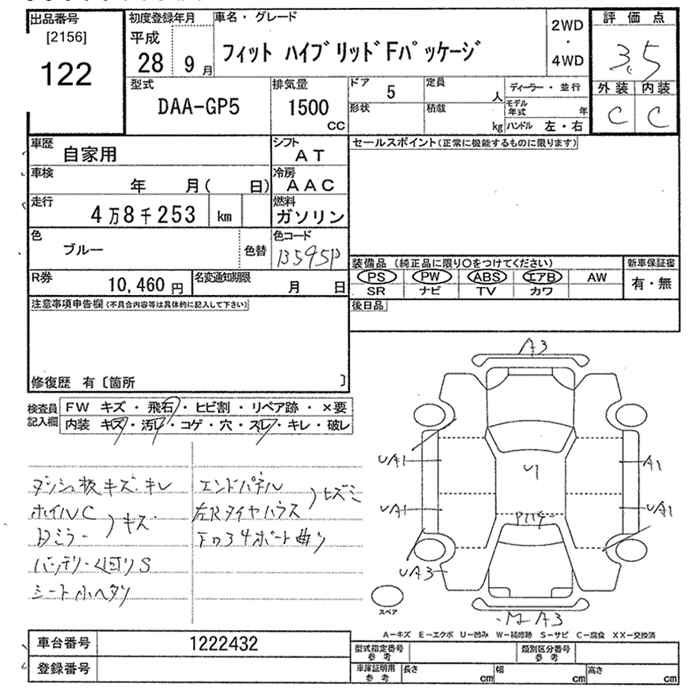 出品番号
[2156]
122
初度登録年月
平成
28 9月
車名・グレード
フィット ハイブリッドFパッケージ
2WD
・
4WD
評価点
3.5
外装 内装
C C
型式
DAA-GP5
排気量
1500
CC
ドア
5
定員
人
形状
積載
kg
ディーラー・並行
モデル年式 年
ハンドル 左・右
車歴
自家用
シフト
AT
車検
年 月( 日)
冷房
AAC
走行
4万8千253 km
燃料
ガソリン
色
ブルー
色替
色コード
B595P
R券
10,460円
名変通知期限
月 日
セールスポイント(正常に機能するものに限ります)
装備品 (純正品に限り○をつけてください)
新車保証書
PS PW ABS エアB AW
有・無
SR ナビ TV カワ
後日品
注意事項申告欄(不具合内容等は具体的に記入して下さい)
修復歴 有〔箇所 〕
検査員記入欄
FW キズ・飛石・ヒビ割・リペア跡・×要
内装 キズ・汚レ・コゲ・穴・スレ・キレ・破レ
ダッシュ板キズ・キレ
ホイルC
Dミラー
キズ
シート小ヘタリ
エンドパネル
左Rタイヤハウス
ヒズミ
A3
UA1
A1
U1
UA1
UA1
UA3
A3
スペア
A-キズ E-エクボ U-凹み W-補修跡 S-サビ C-腐食 XX-交換済
車台番号
1222432
登録番号
型式指定番号
参考
類別区分番号
参考
車庫証明用
参考
長さ cm
幅 cm
高さ cm